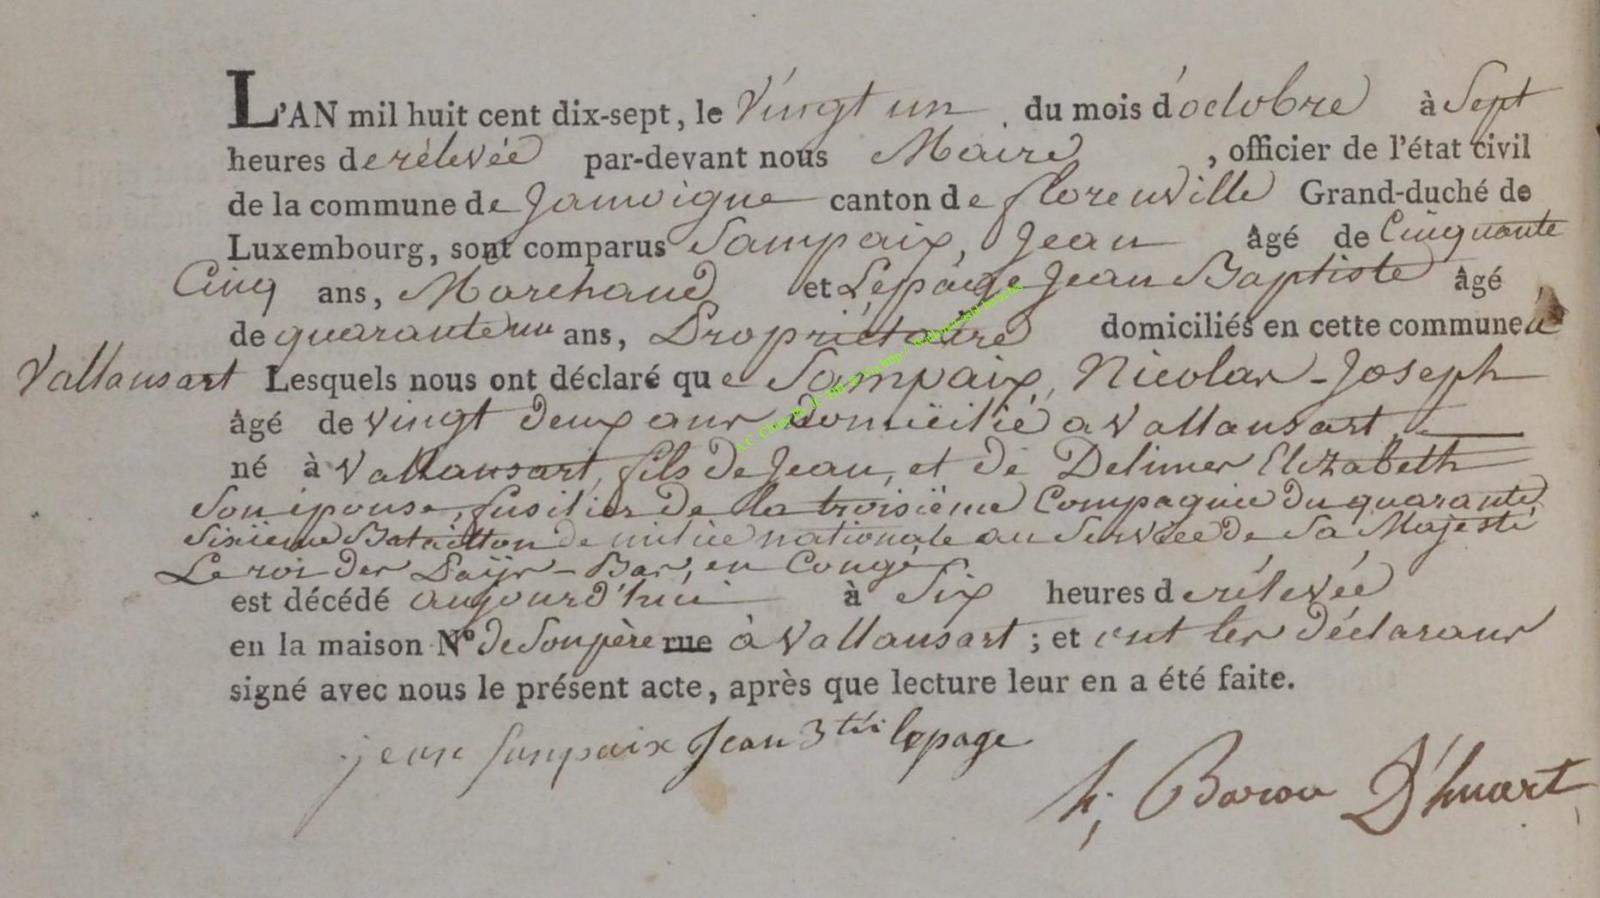 L'AN mil huit cent dix-sept, le Vingt un du mois d'octobre à Sept
heures de rélevée par-devant nous Maire , officier de l'état civil
de la commune de Jamoigne canton de florenville Grand-duché de
Luxembourg, sont comparus Sampaix, Jean âgé de Cinquante
Cinq ans, Marchand et Lepage Jean Baptiste âgé
de quarante un ans, Propriétaire domiciliés en cette commune à
Vallansart Lesquels nous ont déclaré que Sampaix, Nicolas-Joseph
âgé de vingt deux ans domicilié a Vallansart,
né à Vallansart, fils de Jean, et de Delimer Elizabeth
Son épouse, fusilier de la troisième Compagnie du quarante
Sixieme Bataillon de milice nationale au Service de Sa Majesté
Le roi des Païs-Bas, en Congé
est décédé aujourd'hui à Six heures de rélevée
en la maison N° de Son père rue à Vallansart ; et ont les déclarans
signé avec nous le présent acte, après que lecture leur en a été faite.
jean Sanpaix Jean Btis lepage
h; Baron D'huart